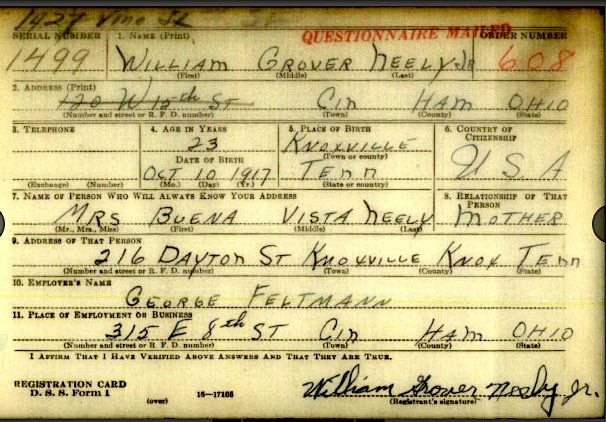 1427 Vine St
SERIAL NUMBER 1. NAME (Print) QUESTIONNAIRE MAILED ORDER NUMBER
1499 WILLIAM GROVER NEELY JR 608
(First) (Middle) (Last)
2. ADDRESS (Print)
120 W 15th ST CIN HAM OHIO
(Number and street or R. F. D. number) (Town) (County) (State)
3. TELEPHONE 4. AGE IN YEARS 5. PLACE OF BIRTH 6. COUNTRY OF CITIZENSHIP
23 KNOXVILLE
DATE OF BIRTH (Town or county) U S A
OCT 10 1917 TENN
(Exchange) (Number) (Mo.) (Day) (Yr.) (State or country)
7. NAME OF PERSON WHO WILL ALWAYS KNOW YOUR ADDRESS 8. RELATIONSHIP OF THAT PERSON
MRS BUENA VISTA NEELY MOTHER
(Mr., Mrs., Miss) (First) (Middle) (Last)
9. ADDRESS OF THAT PERSON
216 DAYTON ST KNOXVILLE KNOX TENN
(Number and street or R. F. D. number) (Town) (County) (State)
10. EMPLOYER'S NAME
GEORGE FELTMANN
11. PLACE OF EMPLOYMENT OR BUSINESS
315 E 8th ST CIN HAM OHIO
(Number and street or R. F. D. number) (Town) (County) (State)
I AFFIRM THAT I HAVE VERIFIED ABOVE ANSWERS AND THAT THEY ARE TRUE.
REGISTRATION CARD William Grover Neely Jr.
D. S. S. Form 1 (over) 16—17105 (Registrant's signature)